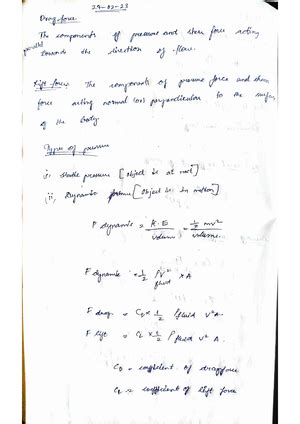 24-02-23
Drag force
The components of pressure and shear force acting
parallel towards the direction of flow.
Lift force: The components of pressure force and shear
force acting normal (or) perpendicular to the surface
of the body.
Types of pressure
(i) Static pressure [Object is at rest]
(ii) Dynamic pressure [Object is in motion]
P dynamic = K.E / volume = 1/2 mv² / volume
F dynamic = 1/2 ρ fluid V² × A
F drag = C_D × 1/2 ρ fluid v² A.
F lift = C_L × 1/2 ρ fluid v² A.
C_D = coefficient of drag force
C_L = coefficient of lift force